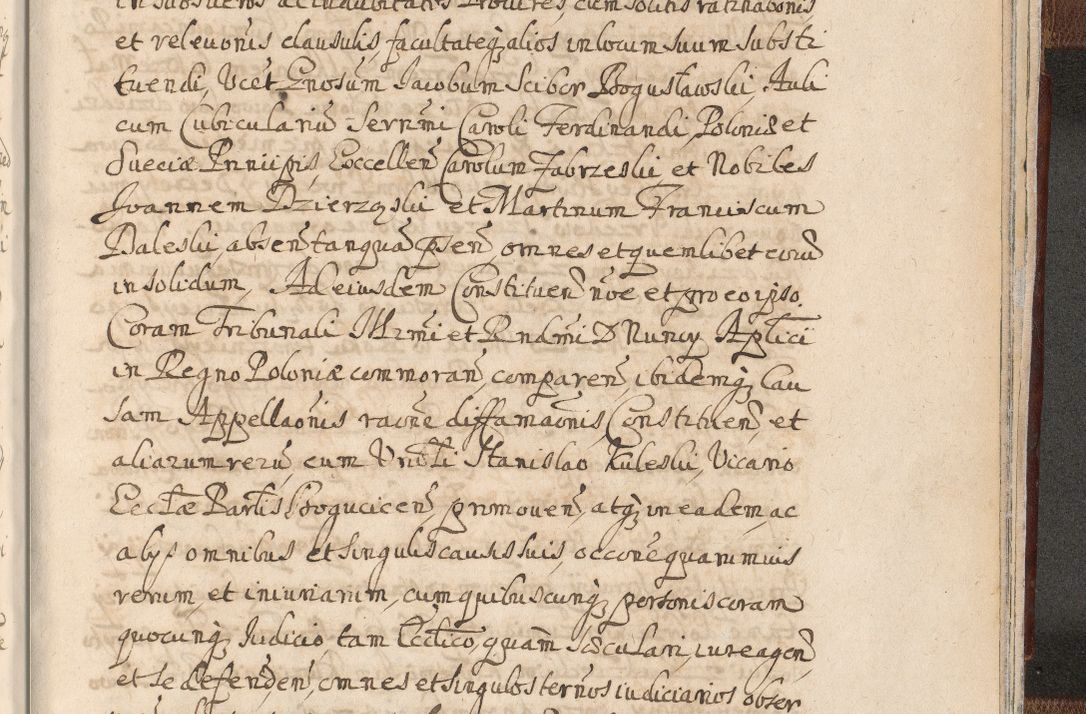 et releuonis clausulis, facultateq; alios in locum suum substi
tuendi, Vcet Gnosum Jacobum Scibor Bogusławski, Auli
cum Cubicularium Sermi Caroli Ferdinandi, Poloniæ et
Sueciæ Principis, Excellen Carolum Zabrzeski et Nobiles
Joannem Dzierzgski et Martinum Franciscum
Daleski, absen tanquam psen, omnes et quemlibet eorum
in solidum, Ad eiusdem Constituen nõe et pro eo ipso.
Coram Tribunali Illrmi et Rndmi D Nuncy Aplici
in Regno Poloniæ commoran, comparen, ibidemq; Cau
sam Appellaonis raone diffamaonis, Constituen, et
aliarum reru cum Vnbli Stanislao Kuleski, Vicario
Ecclæ Parlis Bogucicen, promouen, atq; in eadem, ac
alys omnibus et singulis causis suis, occone quarumuis
rerum, et iniuriarum, cum quibuscunq; personis coram
quocunq; Judicio, tam Ecclico, quam Sæculari, iure agen
et se defenden, omnes et singulos ternos iudiciarios obser